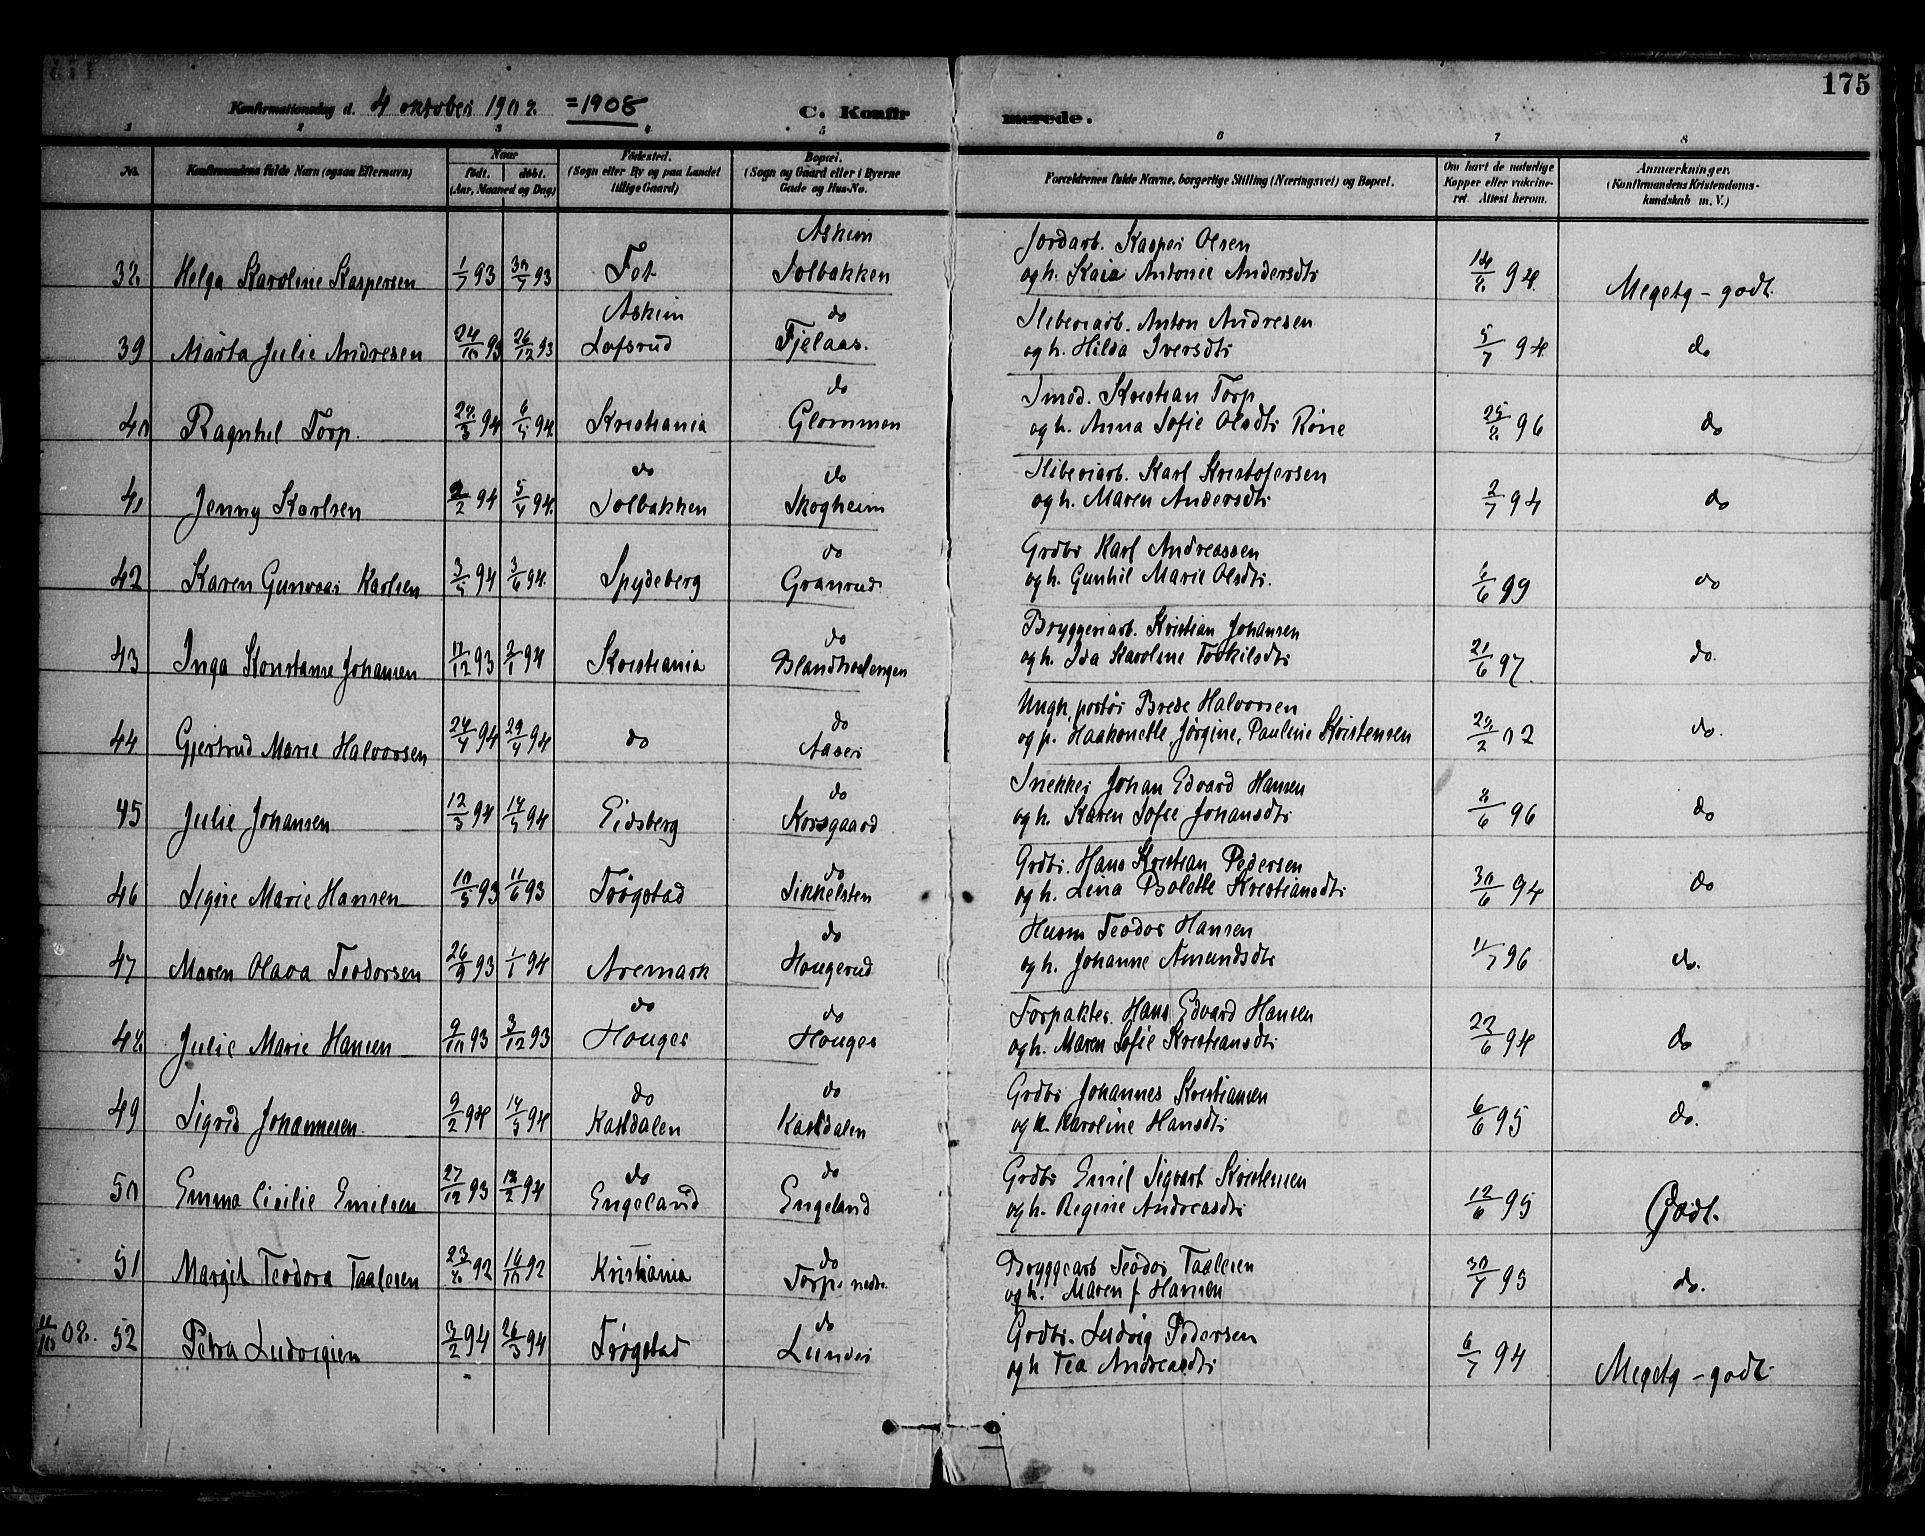 175
Konfirmationsdag d. 4 oktober 1902 = 1908 C. Konfirmerede.
1 2 3 4 5 6 7 8
No. Konfirmandens fulde Navn (ogsaa Efternavn) Naar født. døbt. (Aar, Maaned og Dag) Fødested. (Sogn eller By og paa Landet tillige Gaard) Bopæl. (Sogn og Gaard eller i Byerne Gade og Hus-No. Forældrenes fulde Navne, borgerlige Stilling (Næringsvei) og Bopæl. Om havt de naturlige Kopper eller vakcineret. Attest herom. Anmærkninger. (Konfirmandens Kristendomskundskab m. V.)
Askim Jordarb. Kasper Olsen
38 Helga Karoline Kaspersen 1/7 93 30/7 93 Fet Solbakken og h. Kaia Antonie Andersdtr 14/8 94 Megetg - godt.
Askim do Sliberiarb. Anton Andresen
39 Marta Julie Andresen 24/10 93 26/12 93 Lofsrud Fjelaas. og h. Hilda Iversdtr 5/7 94 do
do Smed. Kristian Torp
40 Ragnhil Torp. 28/3 94 6/5 94 Kristiania Glommen og h. Anna Sofie Olsdtr Røne 25/8 96 do
do do Sliberiarb. Karl Kristofersen
41 Jenny Karlsen 2/2 94 5/4 94. Solbakken Skogheim og h. Maren Andersdtr 2/7 94 do
do Grdbr Karl Andreassen
42 Karen Gunvor Karlsen 3/5 94 3/6 94. Spydeberg Granrud og h. Gunhil Marie Olsdtr. 6/6 99 do
do Bryggeriarb. Kristian Johansen
43 Inga Konstanse Johansen 17/12 93 2/1 94 Kristiania og h. Ida Karoline Torkilsdtr 21/6 97. do.
do Ungk. portør Brede Halvorsen
44 Gjertrud Marie Halvorsen 24/4 94 29/4 94 do Aaser og p. Haakonette Jørgine, Pauline Kristensen 28/2 02 do.
do Snekker Johan Edvard Hansen
45 Julie Johansen 12/3 94 14/5 94 Eidsberg Korsgaard og h. Karen Sofie Johansdtr 8/6 96 do
do Grdbr. Hans Kristian Pedersen
46 Signe Marie Hansen 10/5 93 11/6 93 Trøgstad Sikkelsten og h. Lina Bolette Kristiansdtr 30/6 94 do
do Husm Teodor Hansen
47 Maren Olava Teodorsen 26/9 93 1/1 94 Aremark Hougerud og h. Johanne Amundsdtr 11/7 96 do.
do do Forpakter. Hans Edvard Hansen
48 Julie Marie Hansen 9/10 93 3/12 93 Houger Houger og h. Maren Sofie Kristiansdtr 22/6 94 do
do do Grdbr Johannes Kristiansen
49 Sigrid Johannesen. 9/2 94 14/5 94 Kastdalen Kastdalen og h. Karoline Hansdtr 6/6 95 do.
do do Grdbr Emil Sigvart Kristensen
50 Emma Cicilie Emilsen 27/12 93 18/2 94 Engeland Engeland og h. Regine Andreasdtr 12/6 95 Godt.
do Bryggearb Teodor Taalesen
51 Margit Teodora Taalesen 23/8 92 16/10 92 Kristiania Torp. nedr. og h. Maren f Hansen 30/7 95 do.
do Grdbr. Ludvig Pedersen
11/10 08. 52 Petra Ludvigsen 3/2 94 26/3 94 Trøgstad Lunder og h Tea Andreasdtr 6/7 94 Megetg - godt.